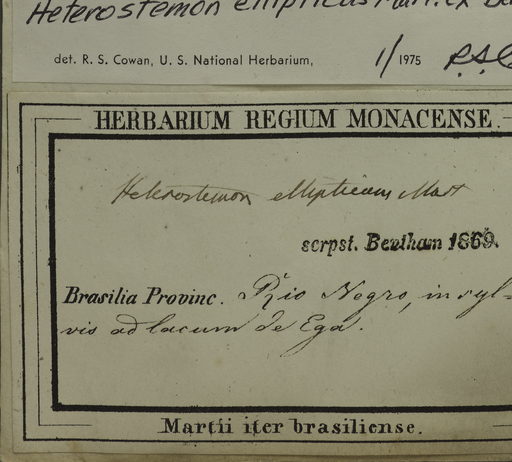 Heterostemon ellipticus Mart. ex
det. R. S. Cowan, U. S. National Herbarium, 1/1975 R.S.C
HERBARIUM REGIUM MONACENSE.
Heterostemon ellipticum Mart
scrpst. Bentham 1869.
Brasilia Provinc. Rio Negro, in syl-
vis ad lacum de Ega.
Martii iter brasiliense.